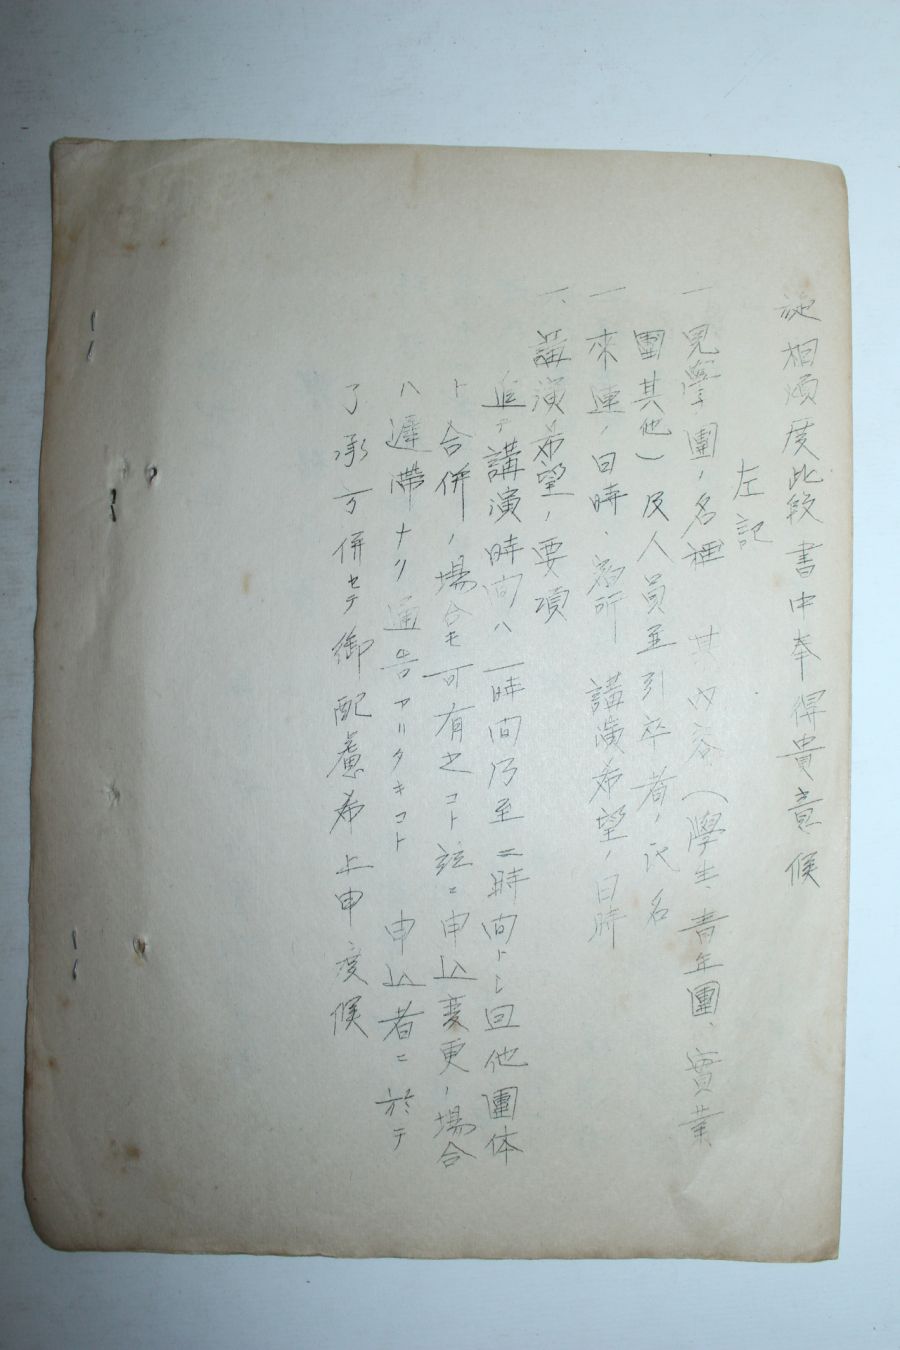 旋相煩度此段書中奉得貴意候
左記
一 見學團ノ名種 其内容（學生、青年團、實業
團其他）及人員並引卒者ノ氏名
一 來連ノ日時、宿所 講演希望ノ日時
一、講演希望ノ要項
追テ講演時间ハ一時间乃至二時间トシ回他團体
ト合併ノ場合モ可有之コト玆ニ申込変更ノ場合
ハ遲滞ナク通告アリタキコト 申込者ニ於テ
了承方併セテ御配慮希上申度候